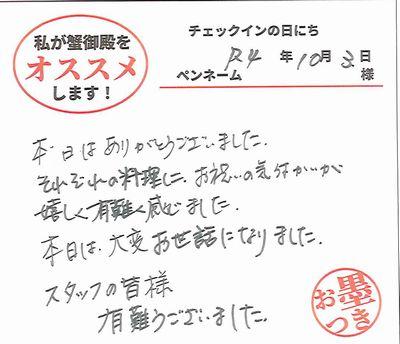 私が蟹御殿を
オススメ
します！
チェックインの日にち
R4 年 10月 3日
ペンネーム 様
本日はありがとうございました。
それぞれの料理に、お祝いの気分かいが
嬉しく有難く感じました。
本日は、大変お世話になりました。
スタッフの皆様
有難うございました。
お墨つき